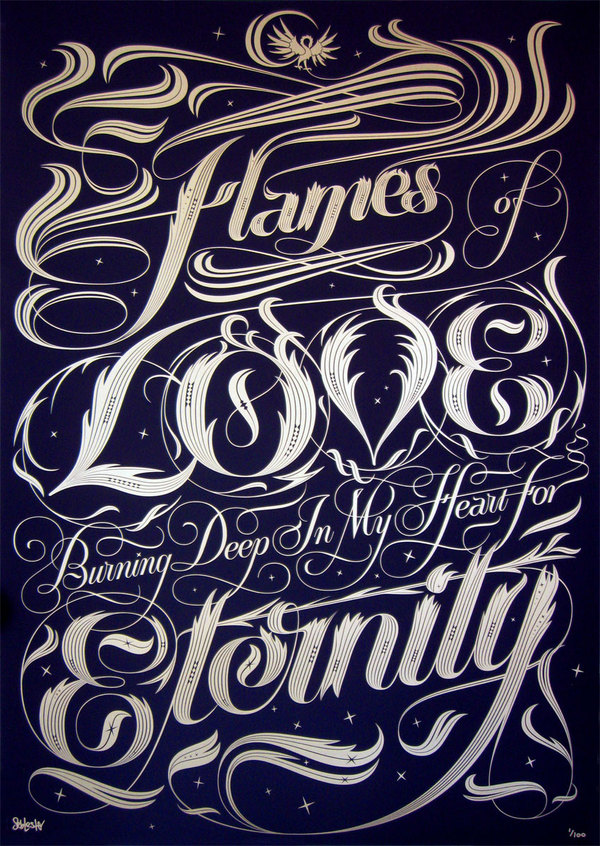 Flames of
LOVE
Burning Deep In My Heart For
Eternity
1/100